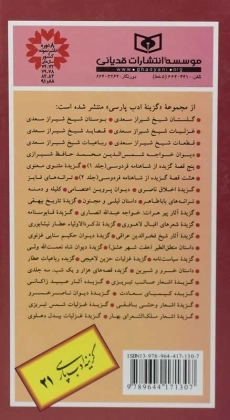 مؤسسه انتشارات قدیانی
www.ghadyani.org
از مجموعهٔ «گزینهٔ ادب پارسی» منتشر شده است:
گلستان شیخ شیراز سعدی بوستان شیخ شیراز سعدی
غزلیات شیخ شیراز سعدی قصاید شیخ شیراز سعدی
قطعات شیخ شیراز سعدی رباعیات شیخ شیراز سعدی
دیوان خواجه شمس‌الدین محمد حافظ شیرازی
پنج قصهٔ گزیده از شاهنامه فردوسی (جلد ۱) گزیده مثنوی معنوی
هشت قصهٔ گزیده از شاهنامه فردوسی (جلد ۲)
گزیدهٔ اخلاق ناصری دیوان پروین اعتصامی کلیله و دمنه
ترانه‌های باباطاهر داستان لیلی و مجنون گزیدهٔ تاریخ بیهقی
گزیدهٔ آثار پیر هرات: خواجه عبدالله انصاری گزیدهٔ قابوسنامه
گزیدهٔ شعرهای اقبال لاهوری گزیدهٔ تذکرةالاولیاء عطار نیشابوری
گزیدهٔ آثار شیخ فخرالدین عراقی گزیدهٔ دیوان حکیم سنایی غزنوی
داستان منطق‌الطیر (هفت شهر عشق) گزیدهٔ دیوان شاه نعمت‌الله ولی
داستان خسرو و شیرین گزیدهٔ قصه‌های هزار و یک شب، سه جلدی
گزیدهٔ اشعار صائب تبریزی گزیدهٔ آثار عبید زاکانی
گزیدهٔ کیمیای سعادت گزیدهٔ دیوان ناصرخسرو
گزیدهٔ اشعار وحشی بافقی گزیدهٔ غزلیات شمس تبریزی
گزیدهٔ اشعار ملک‌الشعرای بهار گزیدهٔ غزلیات بیدل دهلوی
گزینهٔ ادب پارسی
۲۱
ISBN 978-964-417-130-7
9 789644 171307